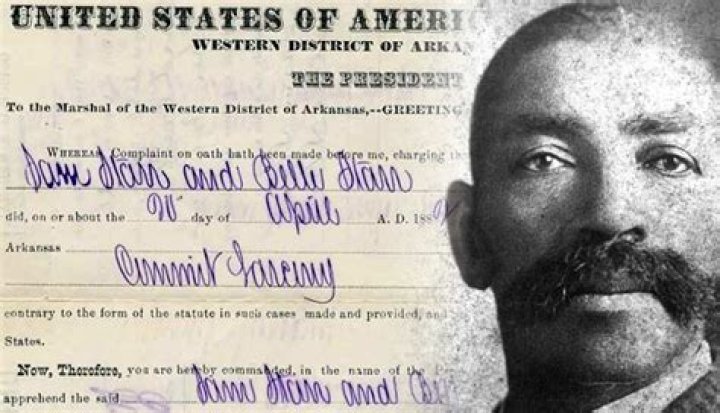 UNITED STATES OF AMERIC
WESTERN DISTRICT OF ARKAN
THE PRESIDENT
To the Marshal of the Western District of Arkansas,--GREETING
WHEREAS, Complaint on oath hath been made before me, charging th
Sam Starr and Belle Starr
did, on or about the 20 day of April A. D. 188
Arkansas
Commit Larceny
contrary to the form of the statute in such cases made and provided, and
States.
Now, Therefore, you are hereby commanded, in the name of the
apprehend the said Sam Starr and Bel